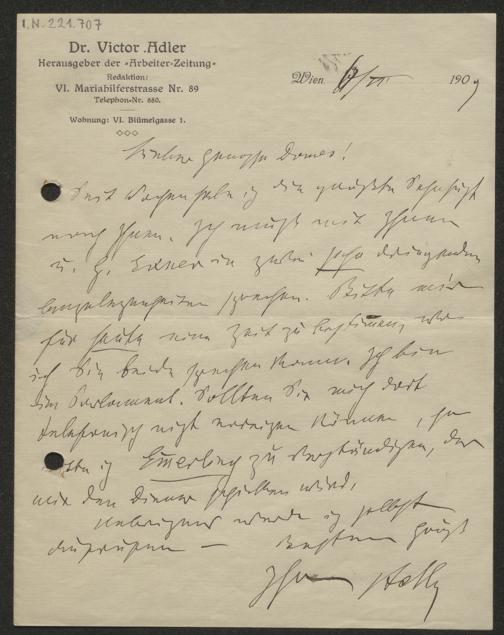 I.N. 221.707
Dr. Victor Adler
Herausgeber der »Arbeiter-Zeitung«
Redaktion:
VI. Mariahilferstrasse Nr. 89
Telephon-Nr. 680.
Wohnung: VI. Blümelgasse 1.
Wien, 1909
Lieber Genosse Domes!
Seit Wochen habe ich die größte Sehnsucht
nach Ihnen. Ich muß mit Ihnen
u. G. in zwei sehr dringenden
Angelegenheiten sprechen. Bitte mir
für heute eine Zeit zu bestimmen, wo
ich Sie beide sprechen kann. Ich bin
im Parlament. Sollten Sie mich dort
telefonisch nicht erreichen können, so
bitte ich zu verständigen, der
mir den Diener schicken wird.
Uebrigens werde ich selbst
anrufen —
Bestens grüßt
Ihr Adler